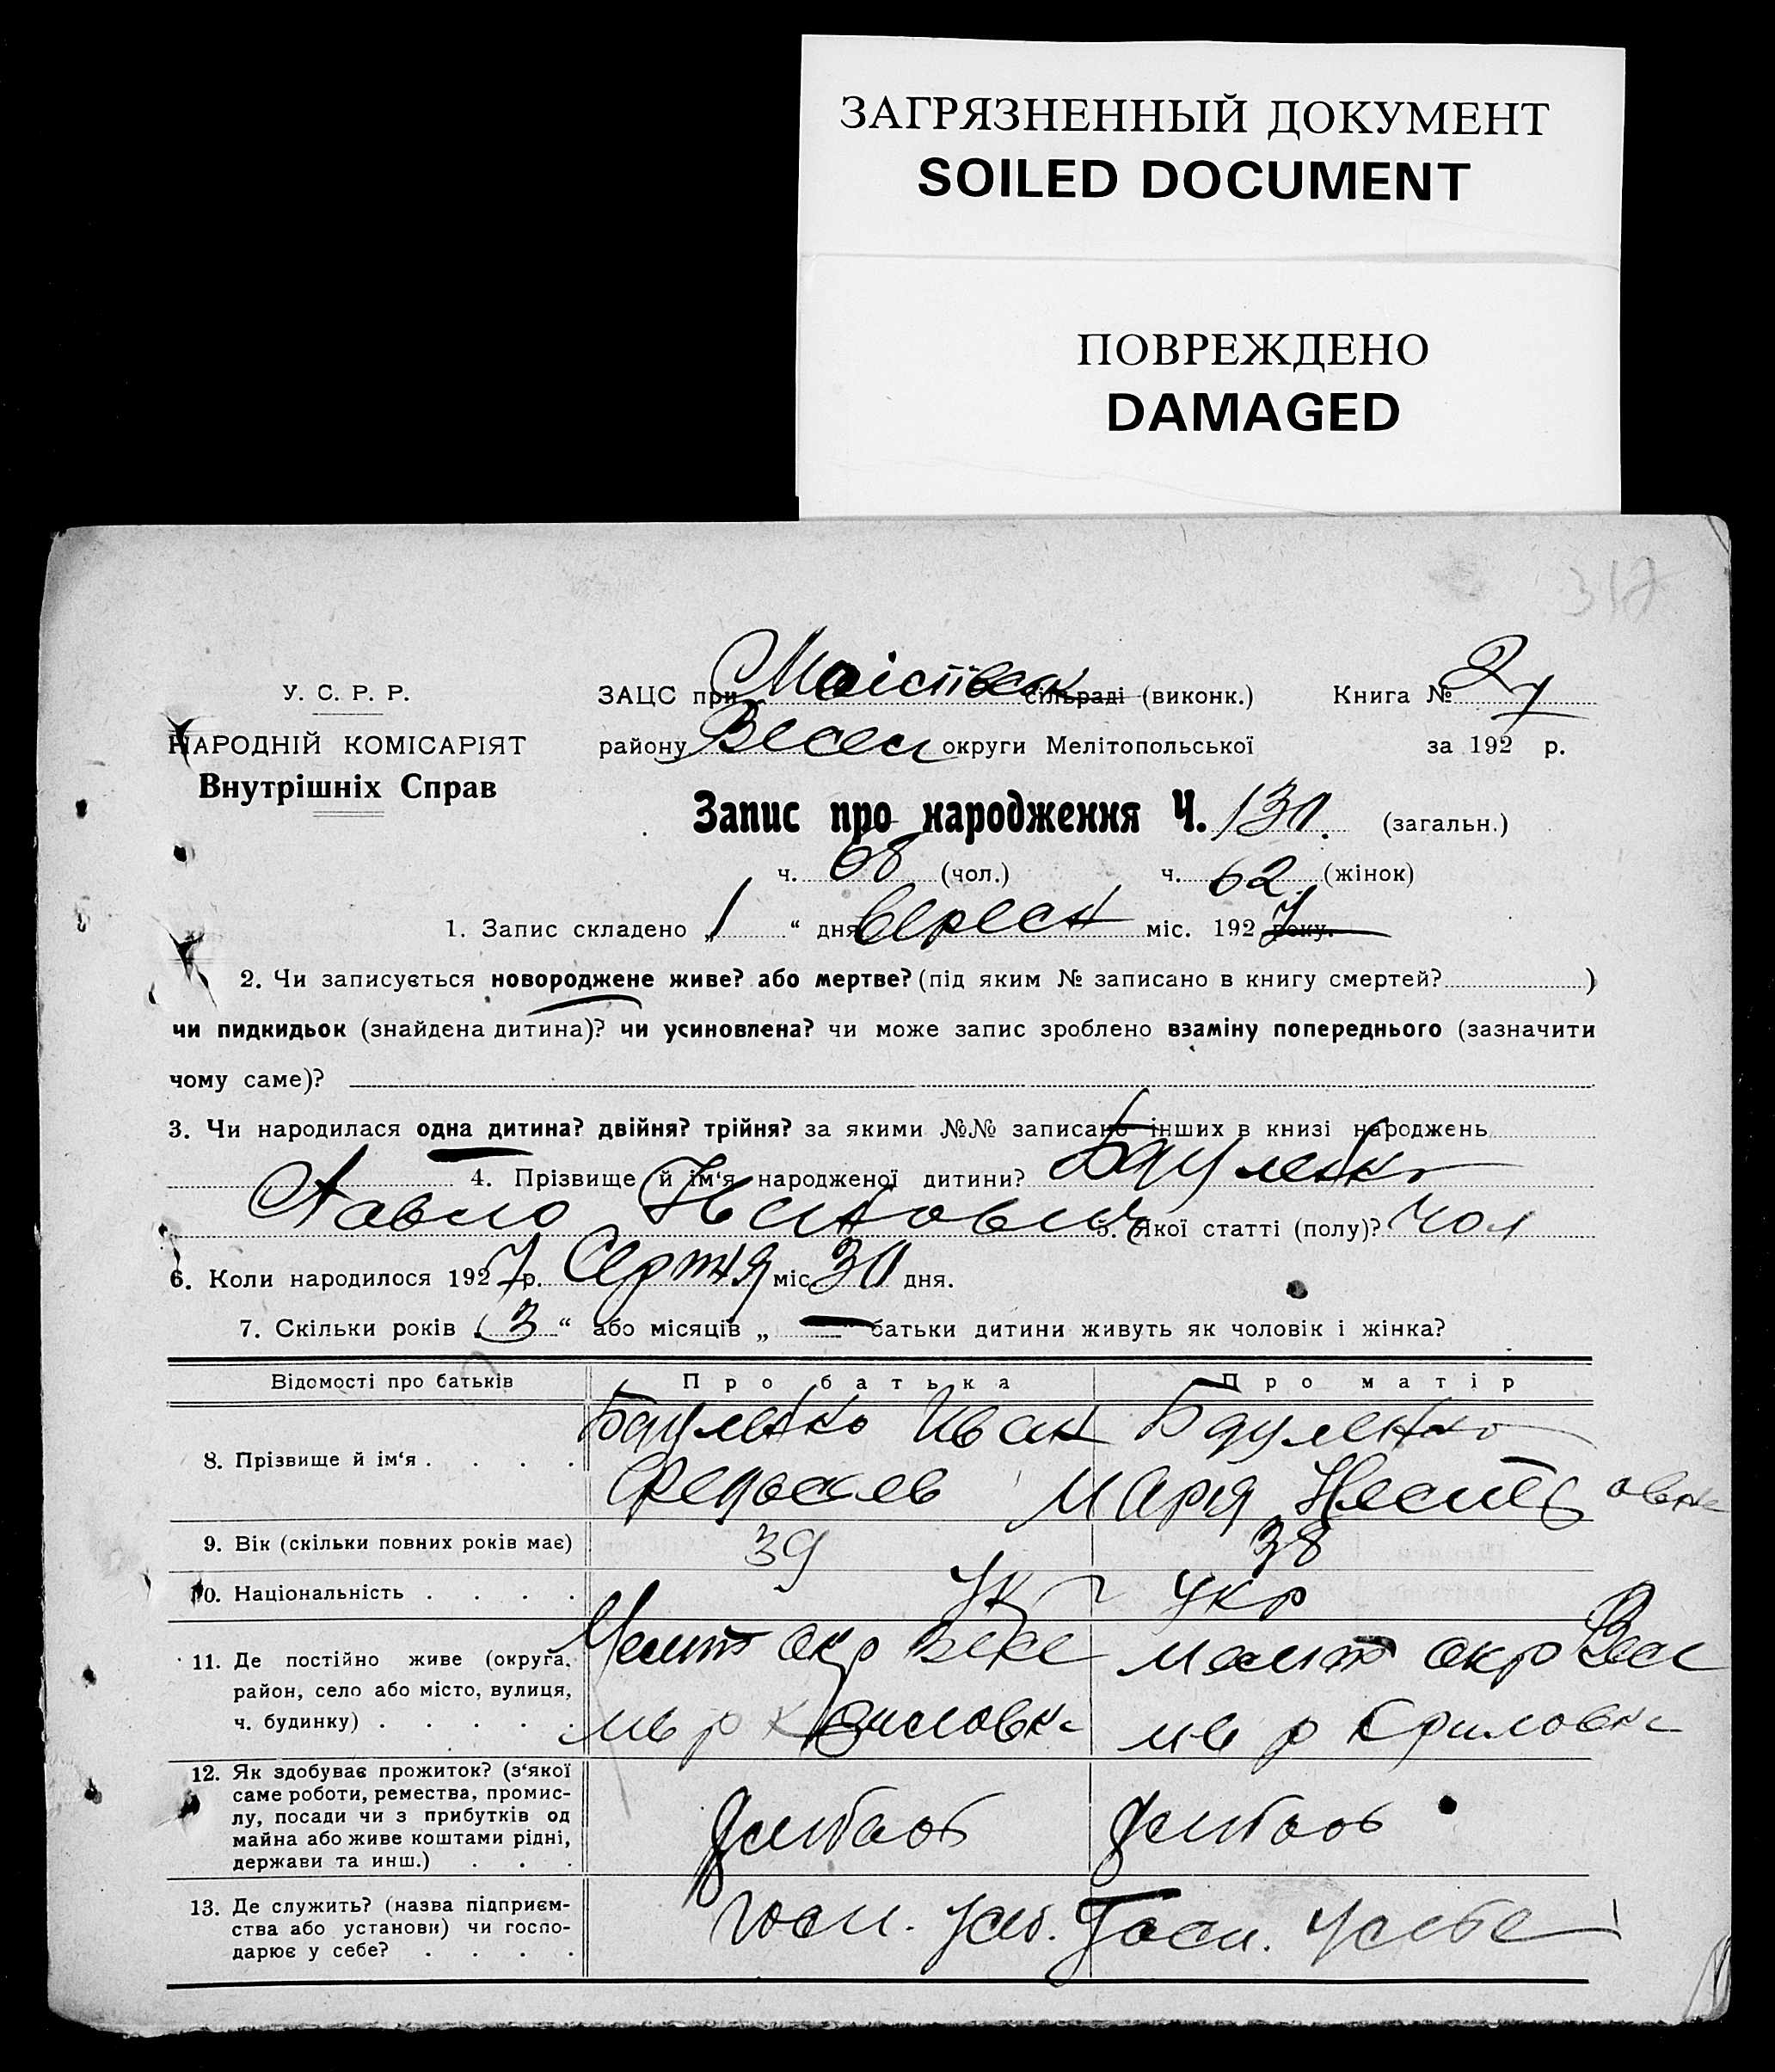 ЗАГРЯЗНЕННЫЙ ДОКУМЕНТ
SOILED DOCUMENT
ПОВРЕЖДЕНО
DAMAGED
317
У. С. Р. Р.
НАРОДНІЙ КОМІСАРІЯТ
Внутрішніх Справ
ЗАЦС при сільраді (виконк.) Книга № 2
району Весел округи Мелітопольської за 1927 р.
Запис про народження Ч. 130. (загальн.)
ч. 68 (чол.) ч. 62 (жінок)
1. Запис складено „1“ дня вересн міс. 1927 року.
2. Чи записується новороджене живе? або мертве? (під яким № записано в книгу смертей? )
чи пидкидьок (знайдена дитина)? чи усиновлена? чи може запис зроблено взаміну попереднього (зазначити
чому саме)?
3. Чи народилася одна дитина? двійня? трійня? за якими №№ записано інших в книзі народжень
4. Прізвище й ім'я народженої дитини?
Павло Іванович 5. Якої статті (полу)? чол
6. Коли народилося 1927 р. Серпня міс. 30 дня.
7. Скільки років „3“ або місяців „—“ батьки дитини живуть як чоловік і жінка?
Відомості про батьків Про батька Про матір
8. Прізвище й ім'я . . . .
Иван
Марія
9. Вік (скільки повних років має) 39 38
10. Національність . . . . Укр Укр
11. Де постійно живе (округа, Мелит окр Весе Мелит окр Весе
район, село або місто, вулиця,
ч. будинку) . . . . . лів р Криловка лів р Криловка
12. Як здобуває прожиток? (з'якої
саме роботи, ремества, промис-
лу, посади чи з прибутків од
майна або живе коштами рідні,
держави та инш.) . . . хлібороб хлібороб
13. Де служить? (назва підприєм-
ства або установи) чи госпо-
дарює у себе? . . . . Госп. усеб. Госп. усебе